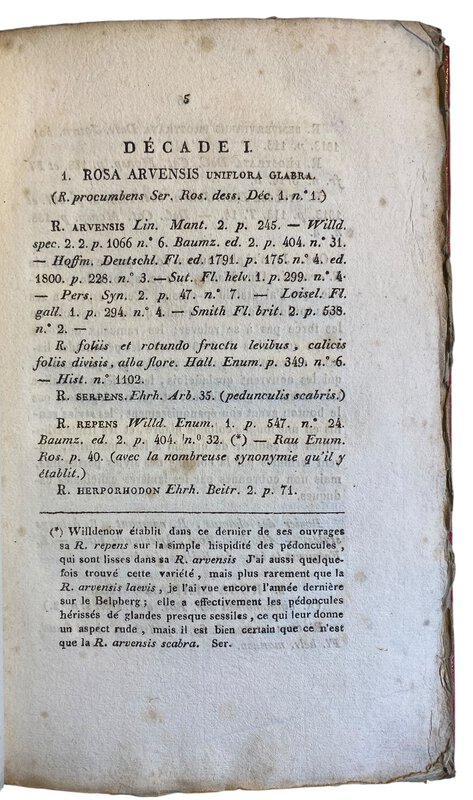 5
DÉCADE I.
1. ROSA ARVENSIS UNIFLORA GLABRA.
(R. procumbens Ser. Ros. dess. Déc. 1. n.° 1.)
R. ARVENSIS Lin. Mant. 2. p. 245. — Willd.
spec. 2. 2. p. 1066 n.° 6. Baumz. ed. 2. p. 404. n.° 31.
— Hoffm. Deutschl. Fl. ed. 1791. p. 175. n.° 4. ed.
1800. p. 228. n.° 3. — Sut. Fl. helv. 1. p. 299. n.° 4.
— Pers. Syn. 2. p. 47. n.° 7. — Loisel. Fl.
gall. 1. p. 294. n.° 4. — Smith Fl. brit. 2. p. 538.
n.° 2. —
R foliis et rotundo fructu levibus, calicis
foliis divisis, alba flore. Hall. Enum. p. 349. n.° 6.
— Hist. n.° 1102.
R. SERPENS. Ehrh. Arb. 35. (pedunculis scabris.)
R. REPENS Willd. Enum. 1. p. 547. n.° 24.
Baumz. ed. 2. p. 404. n.° 32. (*) — Rau Enum.
Ros. p. 40. (avec la nombreuse synonymie qu'il y
établit.)
R. HERPORHODON Ehrh. Beitr. 2. p. 71.
(*) Willdenow établit dans ce dernier de ses ouvrages
sa R. repens sur la simple hispidité des pédoncules,
qui sont lisses dans sa R. arvensis J'ai aussi quelque-
fois trouvé cette variété, mais plus rarement que la
R. arvensis laevis, je l'ai vue encore l'année dernière
sur le Belpberg; elle a effectivement les pédoncules
hérissés de glandes presque sessiles, ce qui leur donne
un aspect rude, mais il est bien certain que ce n'est
que la R. arvensis scabra. Ser.